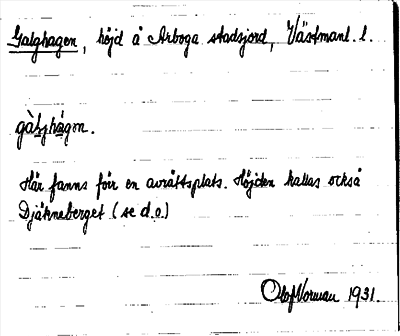 Galghagen, höjd å Arboga stadsjord, Västmanl. l.
gàlzhàgon.
Här fanns förr en avrättsplats. Höjden kallas också
Djäkneberget (se d.o.)
Olof Norman 1931.